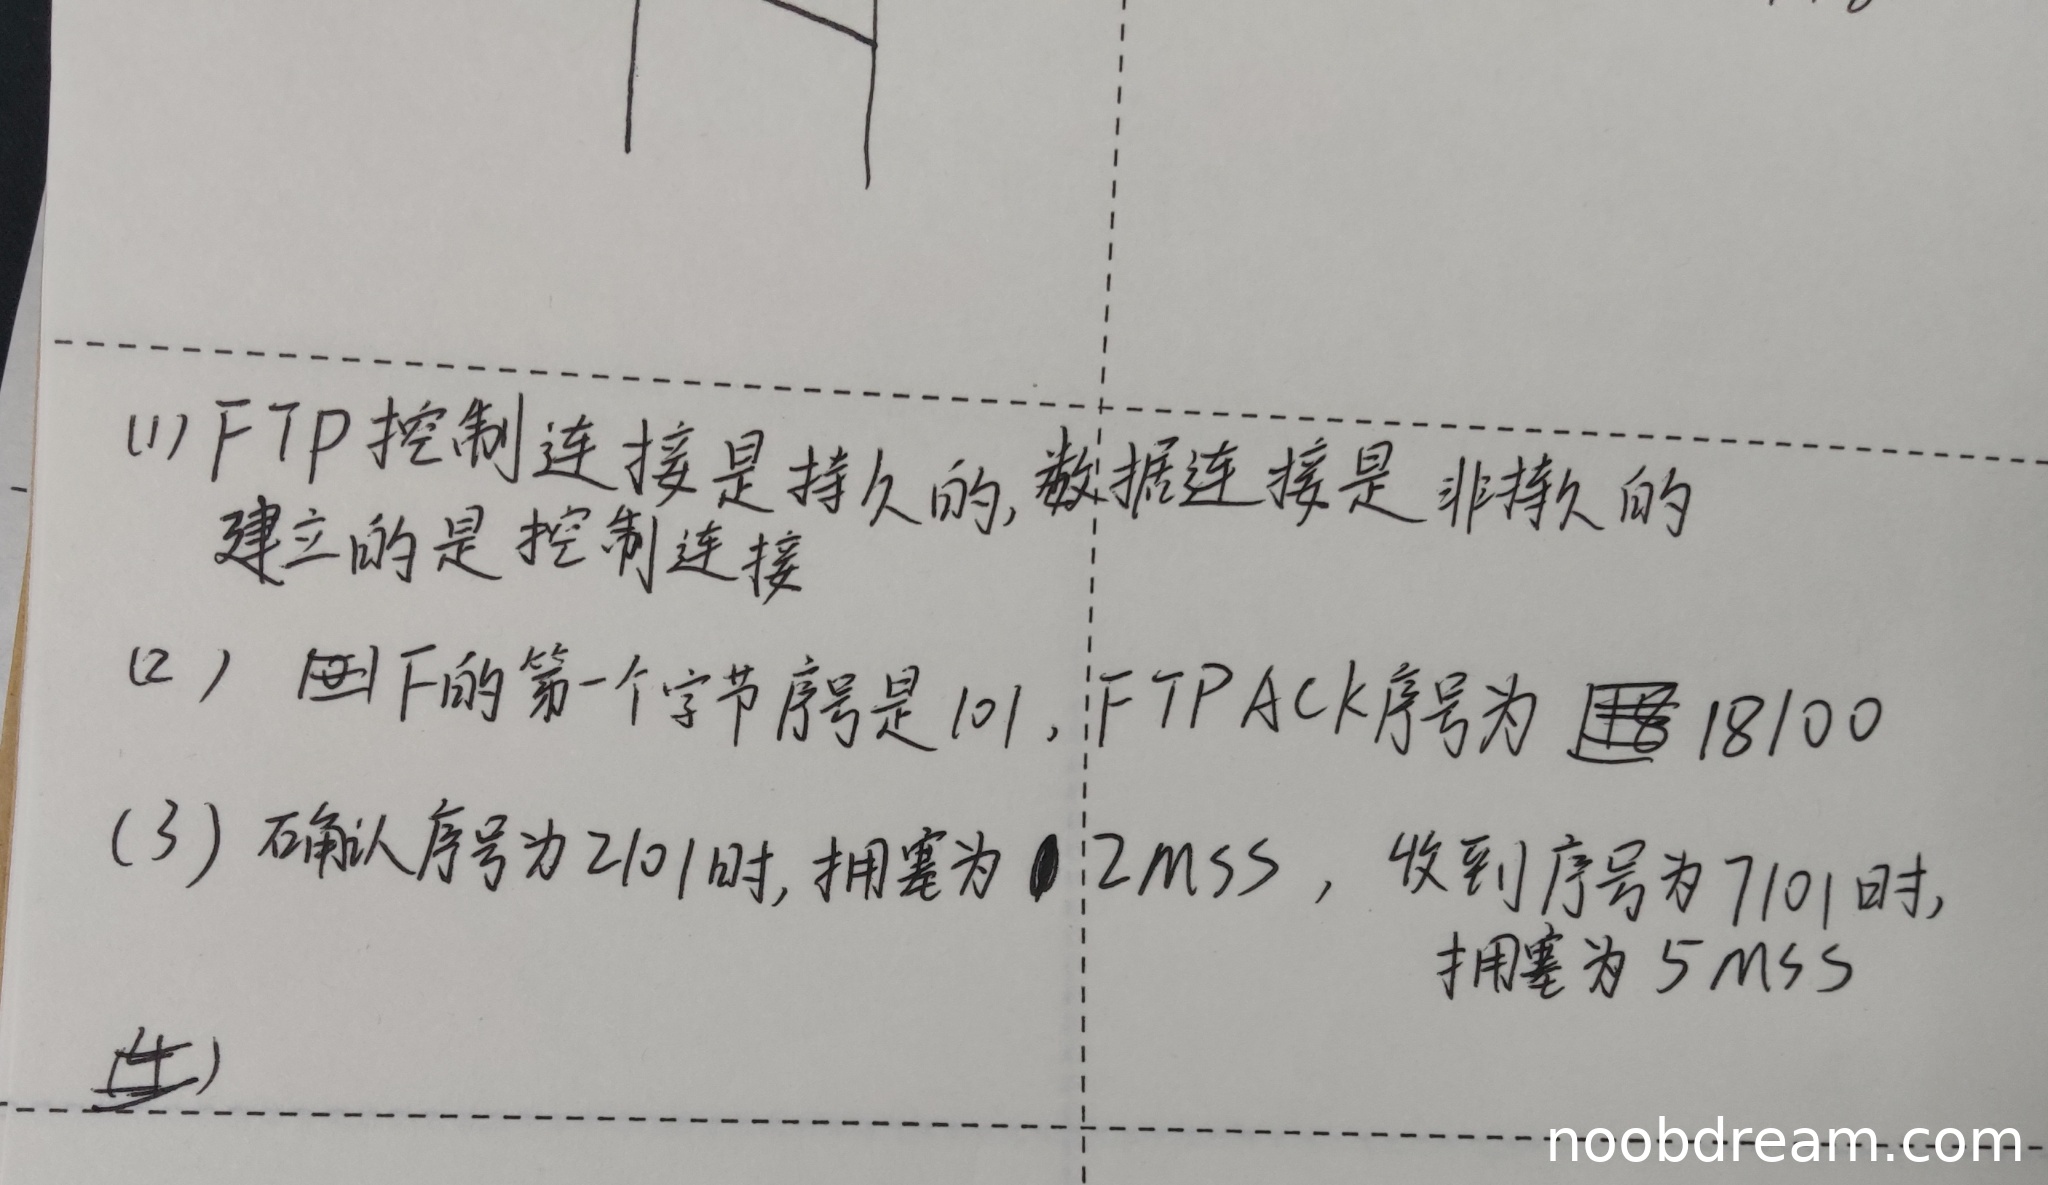 (1) FTP控制连接是持久的,数据连接是非持久的
建立的是控制连接
(2) F的第一个字节序号是101,FTP ACK序号为 18100
(3) 确认序号为2101时,拥塞为 2MSS, 收到序号为7101时,
拥塞为 5MSS
(4)
noobdream.com